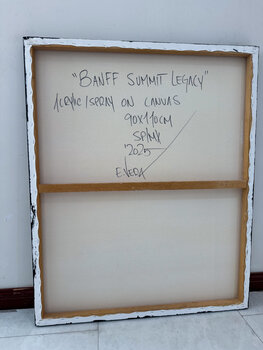 "BANFF SUMMIT LEGACY"
ACRYLIC/SPRAY ON CANVAS
90X110CM
2025